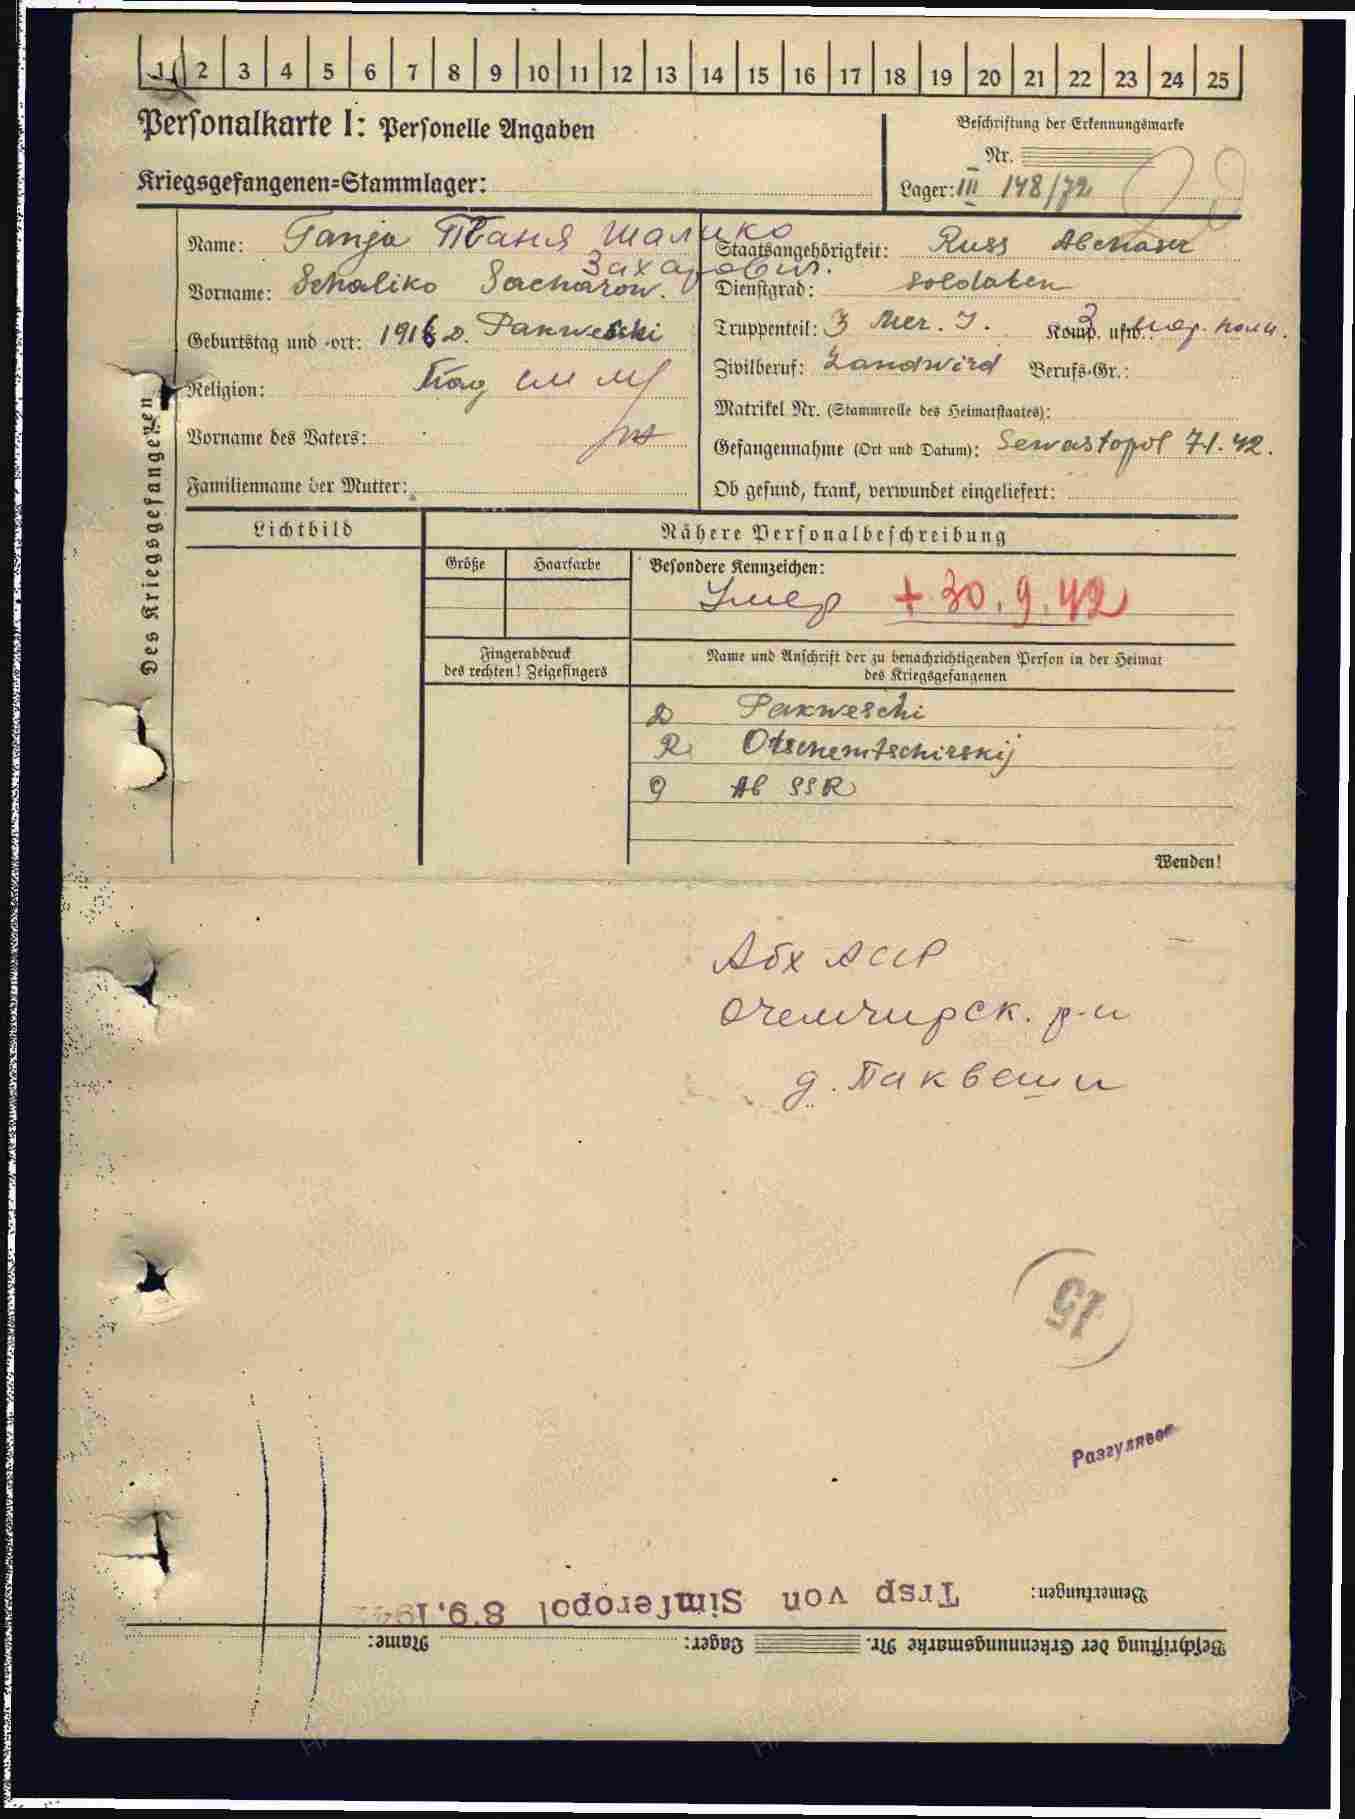 1 2 3 4 5 6 7 8 9 10 11 12 13 14 15 16 17 18 19 20 21 22 23 24 25
Personalkarte I: Personelle Angaben
Beschriftung der Erkennungsmarke
Nr.
Kriegsgefangenen=Stammlager:
Lager: III 148/72
Name: Tanja Таня Шалико
Захарович.
Vorname: Schaliko Sacharow.
Geburtstag und -ort: 1916 D. Pakweschi
Religion:
Vorname des Vaters:
Familienname der Mutter:
Staatsangehörigkeit: Russ Abchaser
Dienstgrad: Soldaten
Truppenteil: 3 Mer. J. Komp. usw.: 3 мор. полк.
Zivilberuf: Landwird Berufs-Gr.:
Matrikel Nr. (Stammrolle des Heimatstaates):
Gefangennahme (Ort und Datum): Sewastopol 7.1.42.
Ob gesund, krank, verwundet eingeliefert:
Des Kriegsgefangenen
Lichtbild
Nähere Personalbeschreibung
Größe Haarfarbe Besondere Kennzeichen:
Умер + 30.9.42
Fingerabdruck
des rechten! Zeigefingers
Name und Anschrift der zu benachrichtigenden Person in der Heimat
des Kriegsgefangenen
D Pakweschi
R. Otschemtschirskij
G Ab SSR
Wenden!
Абх АССР
Очемчирск. р-н
д. Паквеши
15
Разгуляев
Bemerkungen: Trsp von Simferopol 8.9.1942
Beschriftung der Erkennungsmarke Nr. Lager: Name: